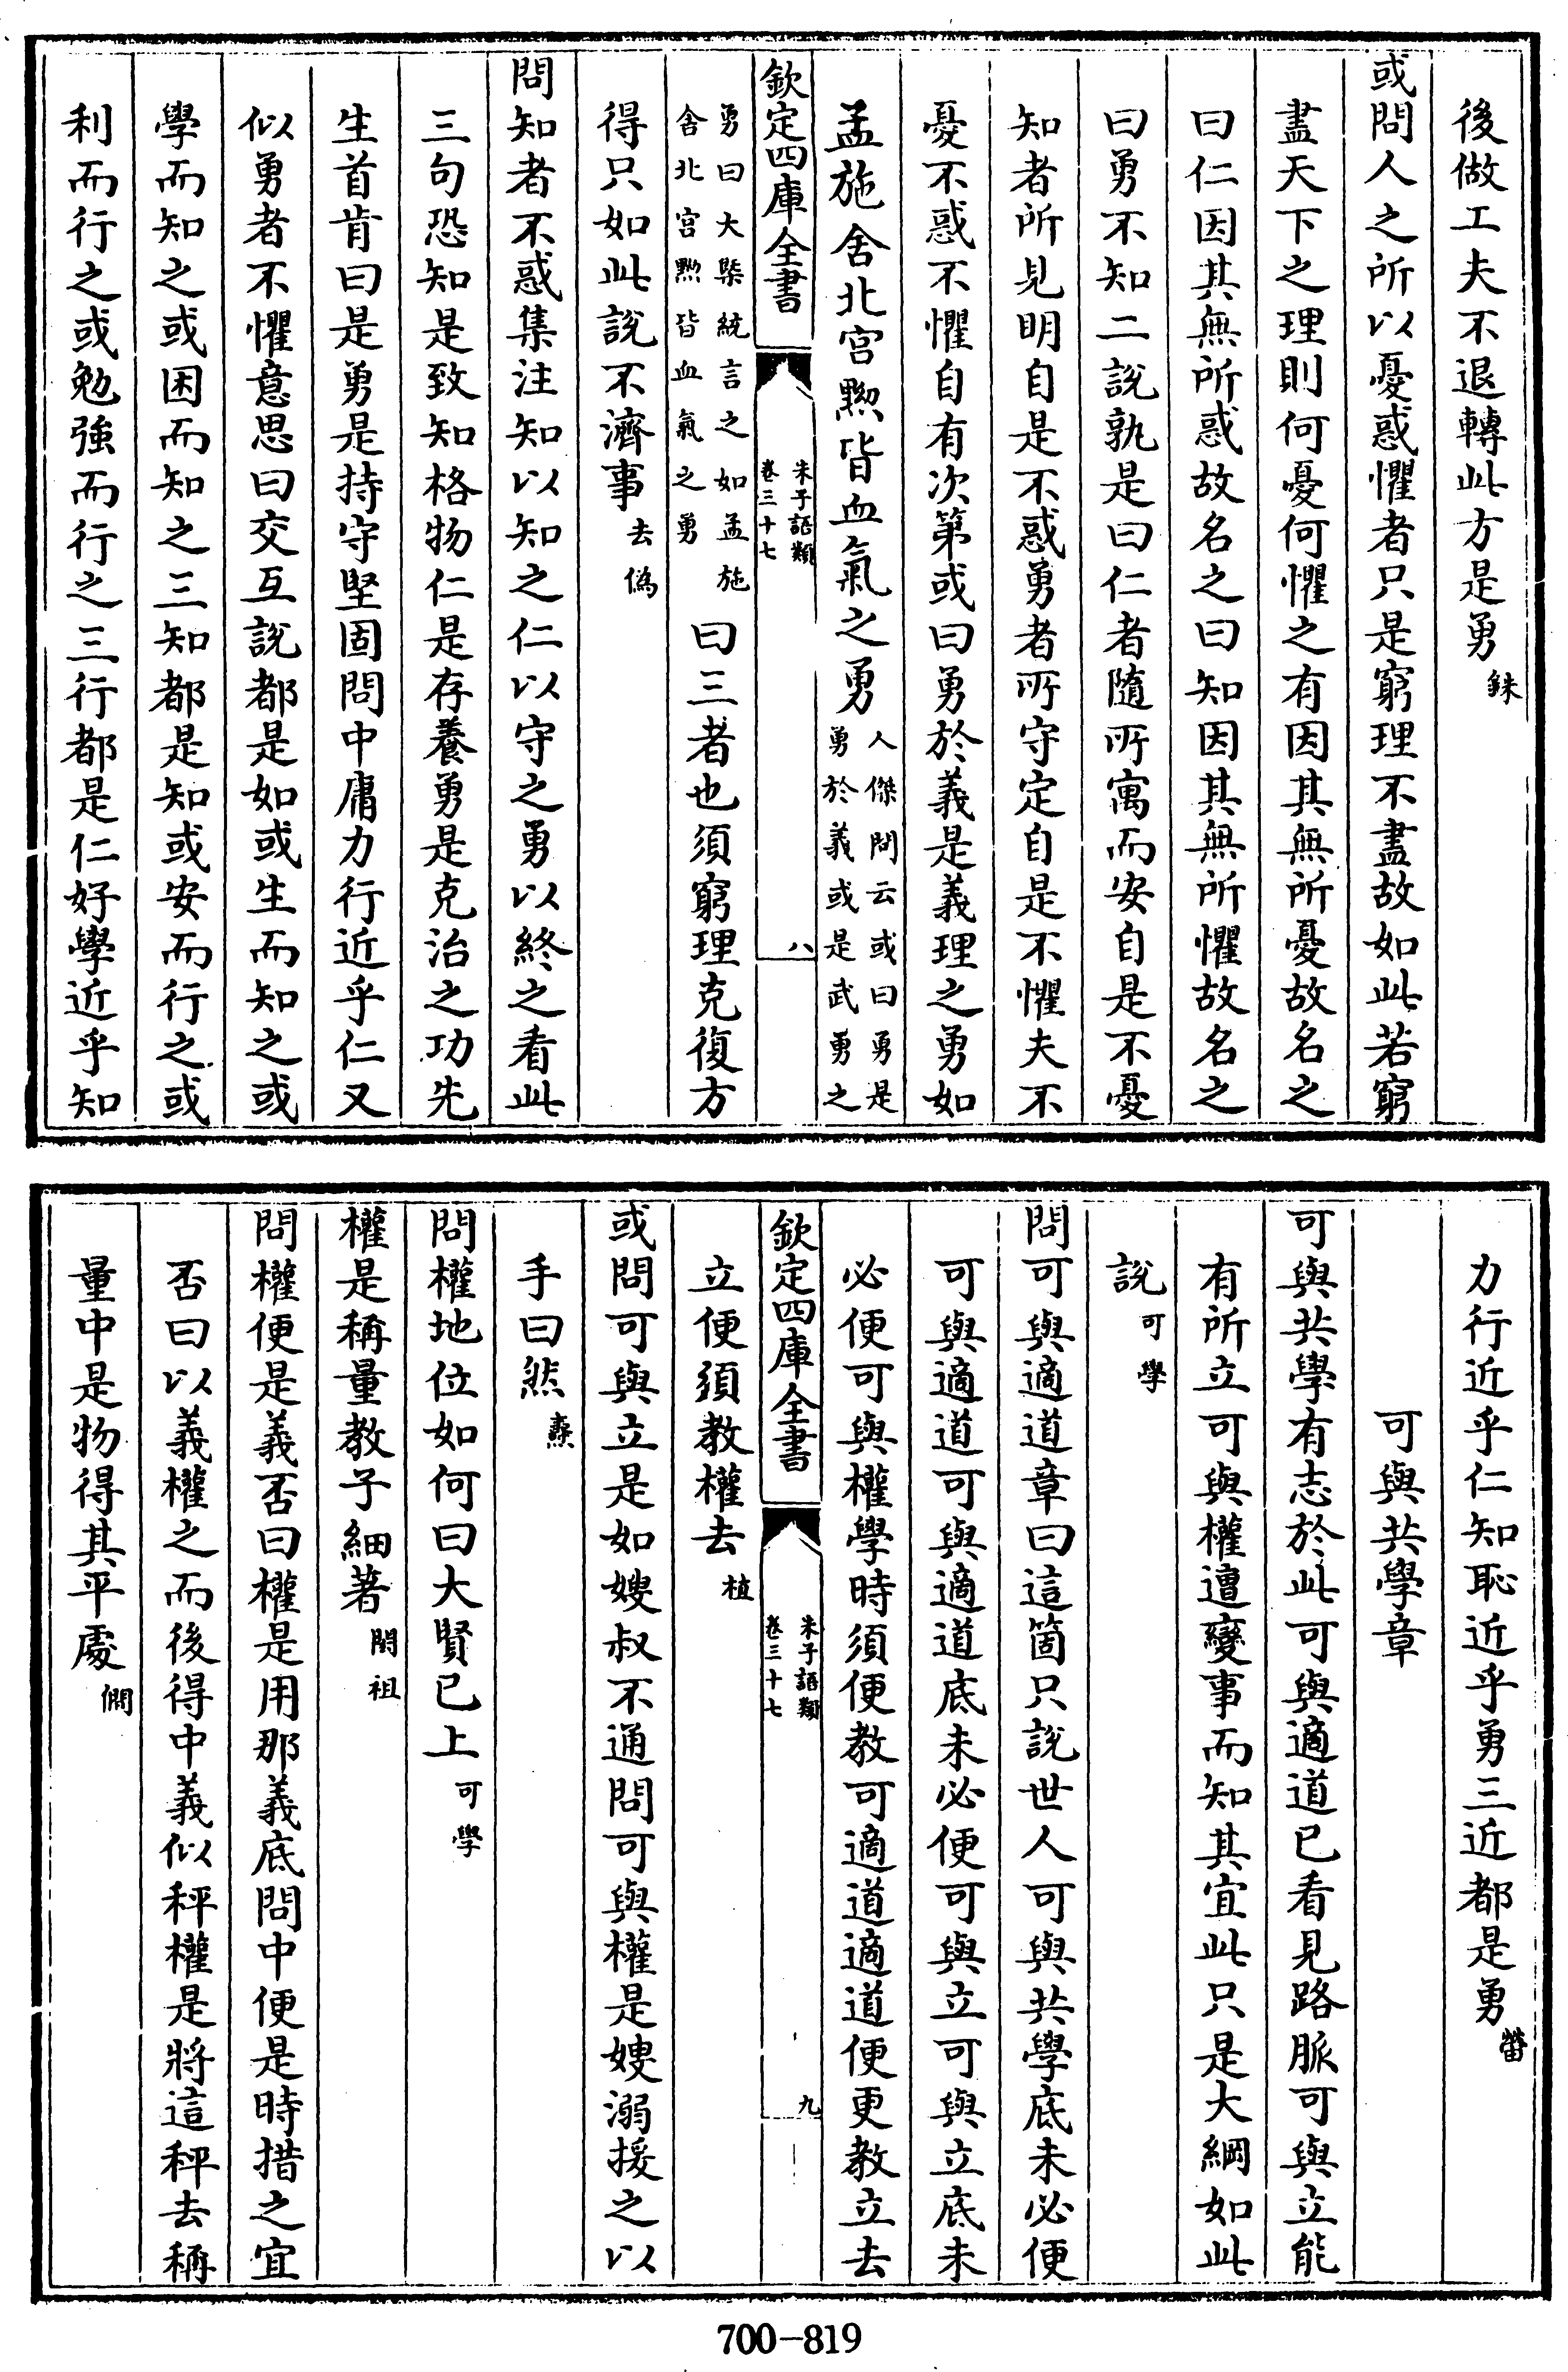 後做工夫不退轉此方是勇銖
或問人之所以憂惑懼者只是窮理不盡故如此若窮
盡天下之理則何憂何懼之有因其無所憂故名之
曰仁因其無所惑故名之曰知因其無所懼故名之
曰勇不知二說孰是曰仁者隨所寓而安自是不憂
知者所見明自是不惑勇者所守定自是不懼夫不
憂不惑不懼自有次第或曰勇於義是義理之勇如
孟施舍北宫黝皆血氣之勇人傑問云或曰勇是勇於義或是武勇之
欽定四庫全書 朱子語類卷三十七 八
勇曰大槩統言之如孟施舍北宫黝皆血氣之勇曰三者也須窮理克復方
得只如此說不濟事去偽
問知者不惑集注知以知之仁以守之勇以終之看此
三句恐知是致知格物仁是存養勇是克治之功先
生首肯曰是勇是持守堅固問中庸力行近乎仁又
似勇者不懼意思曰交互說都是如或生而知之或
學而知之或困而知之三知都是知或安而行之或
利而行之或勉強而行之三行都是仁好學近乎知
力行近乎仁知恥近乎勇三近都是勇㽦
可與共學章
可與共學有志於此可與適道已看見路脈可與立能
有所立可與權遭變事而知其宜此只是大綱如此
說可學
問可與適道章曰這箇只說世人可與共學底未必便
可與適道可與適道底未必便可與立可與立底未
必便可與權學時須便教可適道適道便更教立去
欽定四庫全書 朱子語類卷三十七 九
立便須教權去植
或問可與立是如嫂叔不通問可與權是嫂溺援之以
手曰然燾
問權地位如何曰大賢已上可學
權是稱量教子細著閎祖
問權便是義否曰權是用那義底問中便是時措之宜
否曰以義權之而後得中義似秤權是將這秤去稱
量中是物得其平處僩
700-819